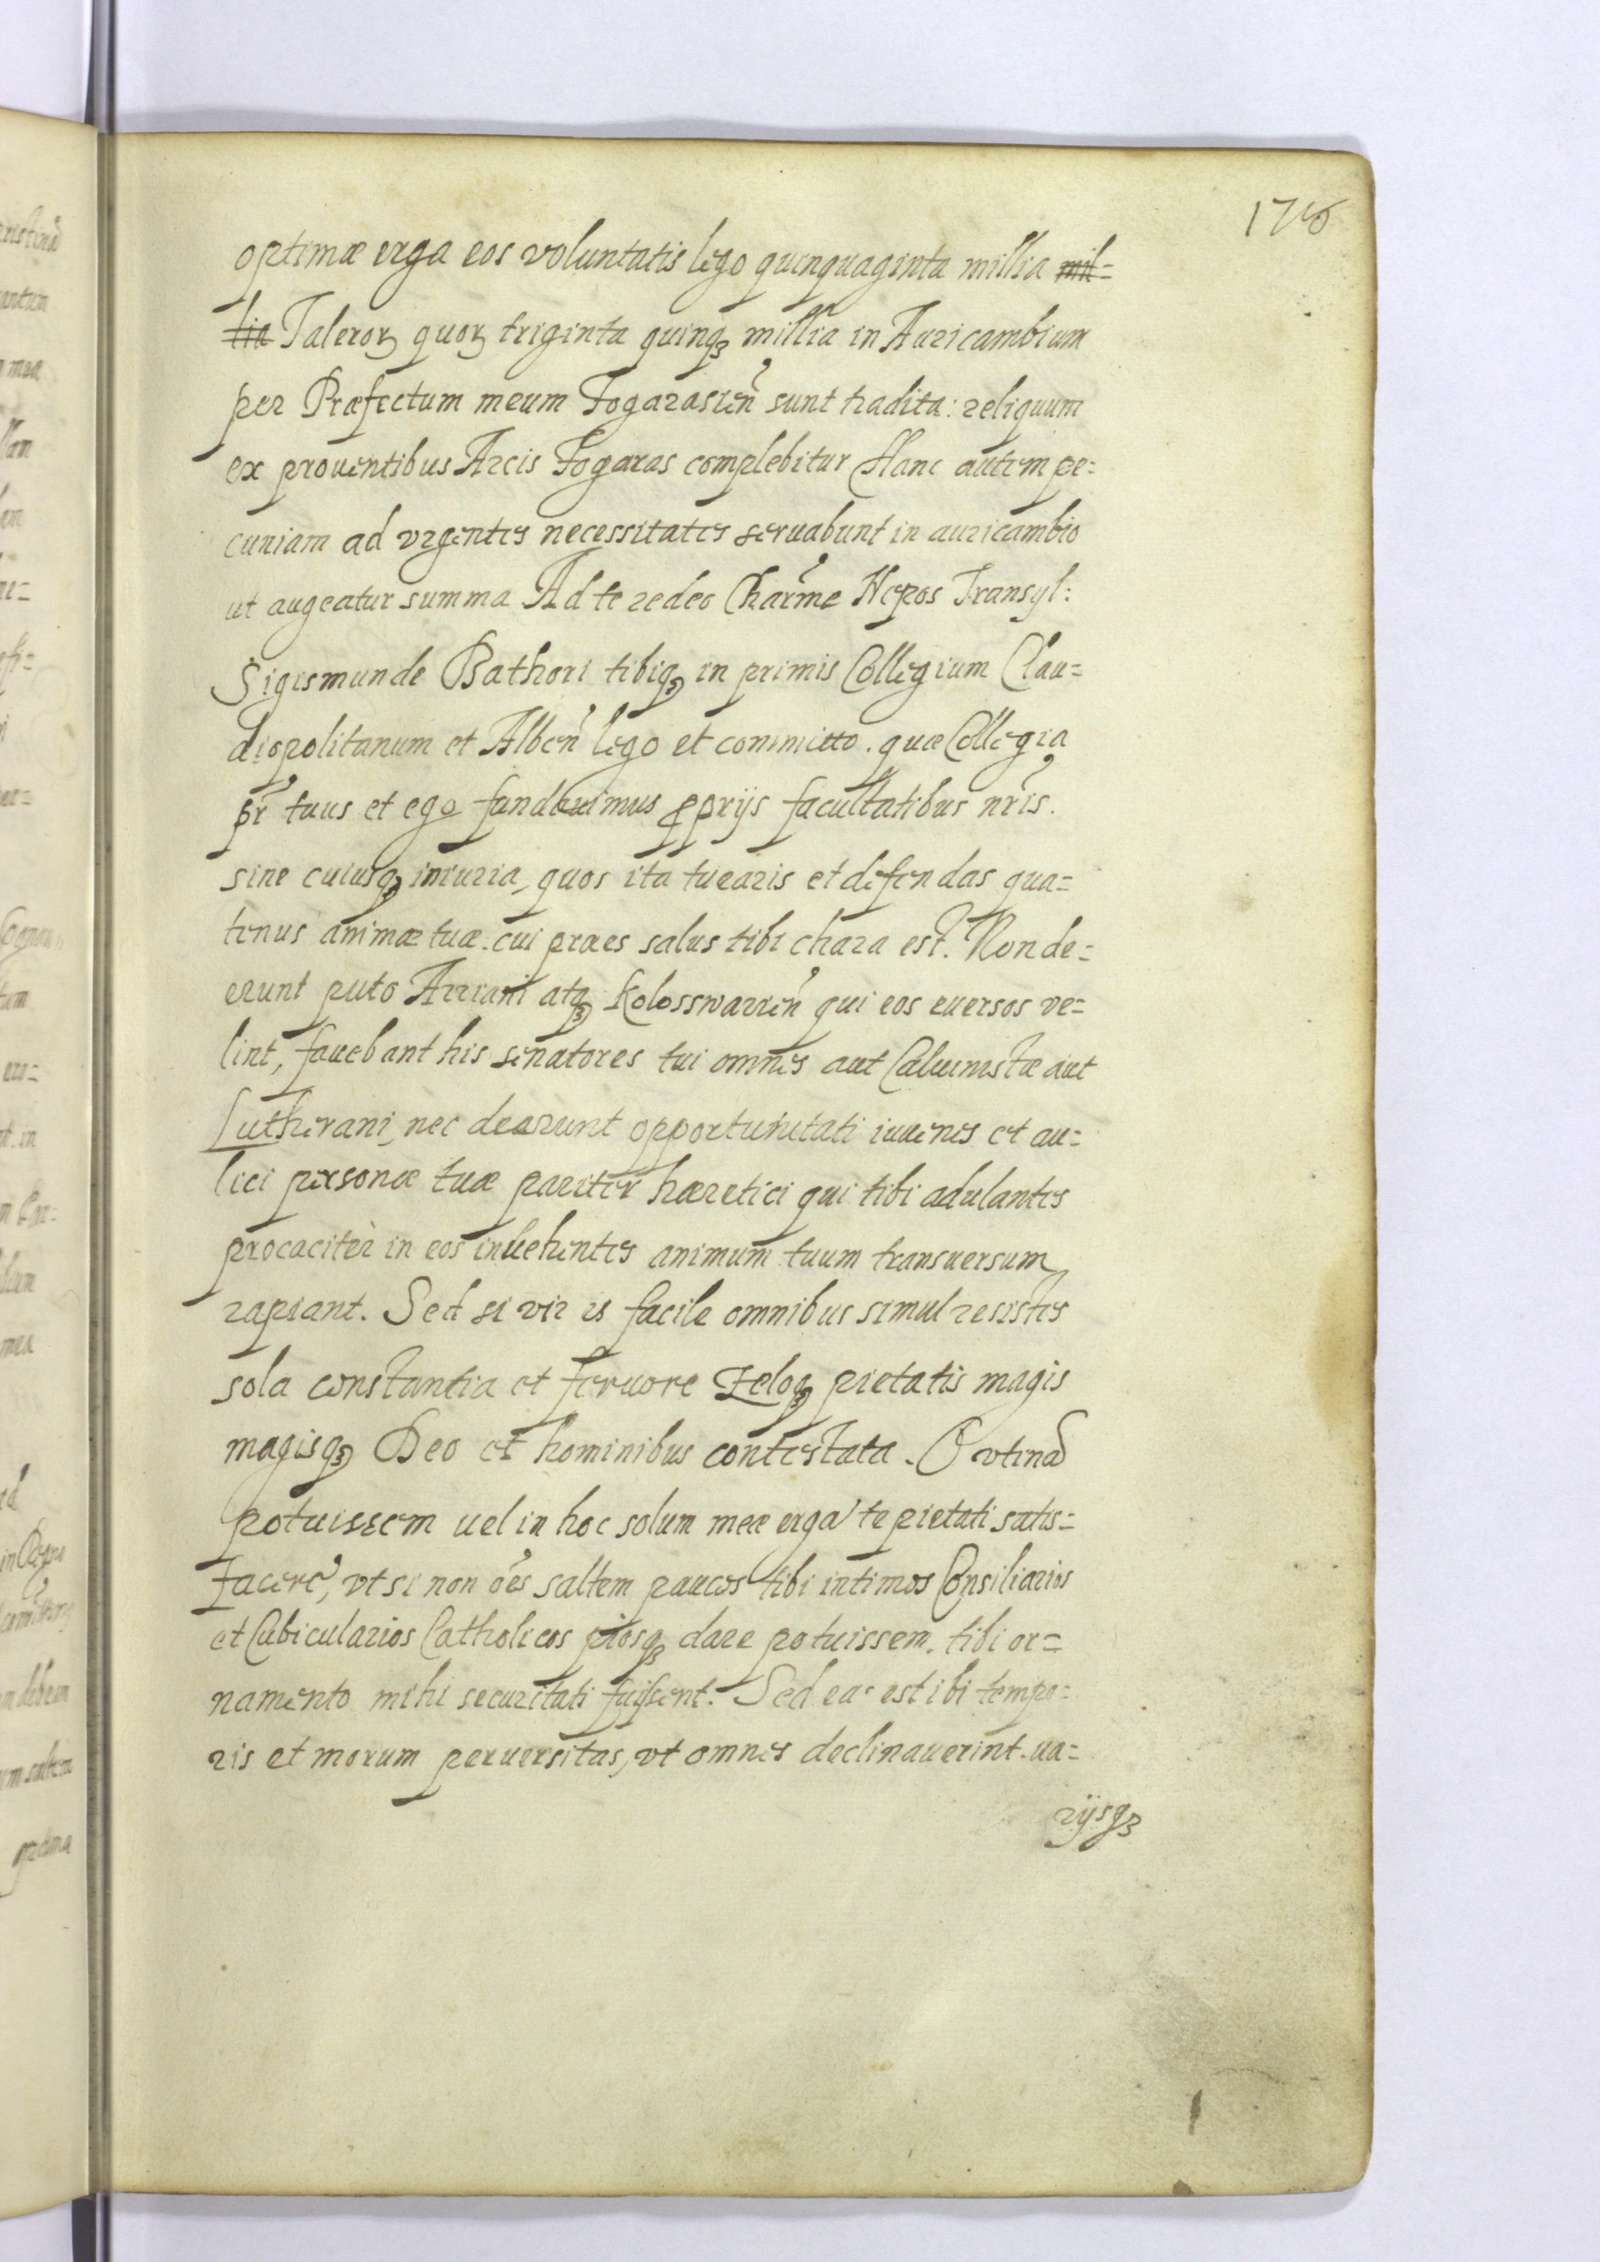 optimæ erga eos voluntatis lego quinquaginta millia mil=
lia Taleroꝝ quoꝝ triginta quinqꝫ millia in Auricambium
per Præfectum meum Fogarasien̄ sunt tradita: reliquum
ex prouentibus Arcis Fogaras complebitur Hanc autem pe=
cuniam ad vrgentes necessitates seruabunt in auricambio
ut augeatur summa Ad te redeo Char̄me Nepos Transyl:
Sigismunde Bathori tibiqꝫ in primis Collegium Clau=
diopolitanum et Alben̄ lego et committo. quæ Collegia
pr̄ tuus et ego fundauimus ꝓprijs facultatibus nr̄is.
sine cuiusqꝫ iniuria, quos ita tuearis et defendas qua=
tenus animæ tuæ cui præes salus tibi chara est. Non de=
erunt puto Arriani atqꝫ Koloswarien̄ qui eos euersos ve=
lint, fauebant his senatores tui omnes aut Caluinistæ aut
Lutherani, nec deerunt opportunitati iuuenes et au=
lici personæ tuæ pariter hæretici qui tibi adulantes
procacitèr in eos inuehentes animum tuum transuersum
rapiant. Sed si vir is facile omnibus simul resistes
sola constantia et feruore Zeloqꝫ pietatis magis
magisqꝫ Deo et hominibus contestata. O vtinā
potuissem uel in hoc solum meæ erga te pietati satis=
facere, vt si non ōes saltem paucos tibi intimos Consiliarios
et Cubicularios Catholicos piosqꝫ dare potuissem. tibi or=
namento mihi securitati fuissent. Sed ea est ibi tempo=
ris et morum peruersitas, vt omnes declinauerint ua=
rijsqꝫ